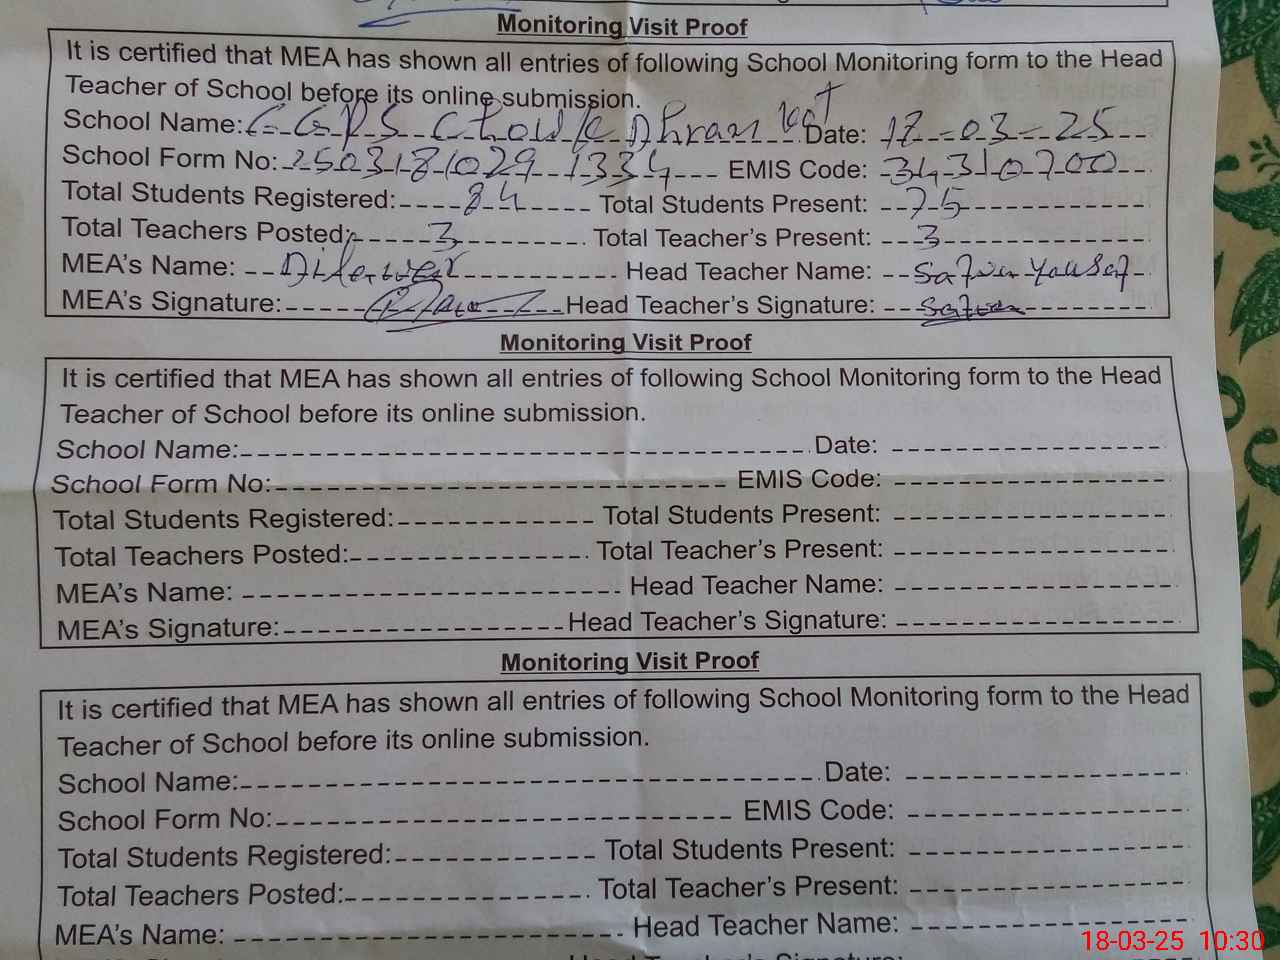 Monitoring Visit Proof
It is certified that MEA has shown all entries of following School Monitoring form to the Head
Teacher of School before its online submission.
School Name: GGPS Chowk Dhran Date: 18-03-25
School Form No: 2503181029 1334 EMIS Code: 34310700
Total Students Registered: 84 Total Students Present: 75
Total Teachers Posted: 3 Total Teacher's Present: 3
MEA's Name: Dilawer Head Teacher Name: Safwan Yousaf
MEA's Signature: Head Teacher's Signature: Safwan
Monitoring Visit Proof
It is certified that MEA has shown all entries of following School Monitoring form to the Head
Teacher of School before its online submission.
School Name: Date:
School Form No: EMIS Code:
Total Students Registered: Total Students Present:
Total Teachers Posted: Total Teacher's Present:
MEA's Name: Head Teacher Name:
MEA's Signature: Head Teacher's Signature:
Monitoring Visit Proof
It is certified that MEA has shown all entries of following School Monitoring form to the Head
Teacher of School before its online submission.
School Name: Date:
School Form No: EMIS Code:
Total Students Registered: Total Students Present:
Total Teachers Posted: Total Teacher's Present:
MEA's Name: Head Teacher Name:
18-03-25 10:30